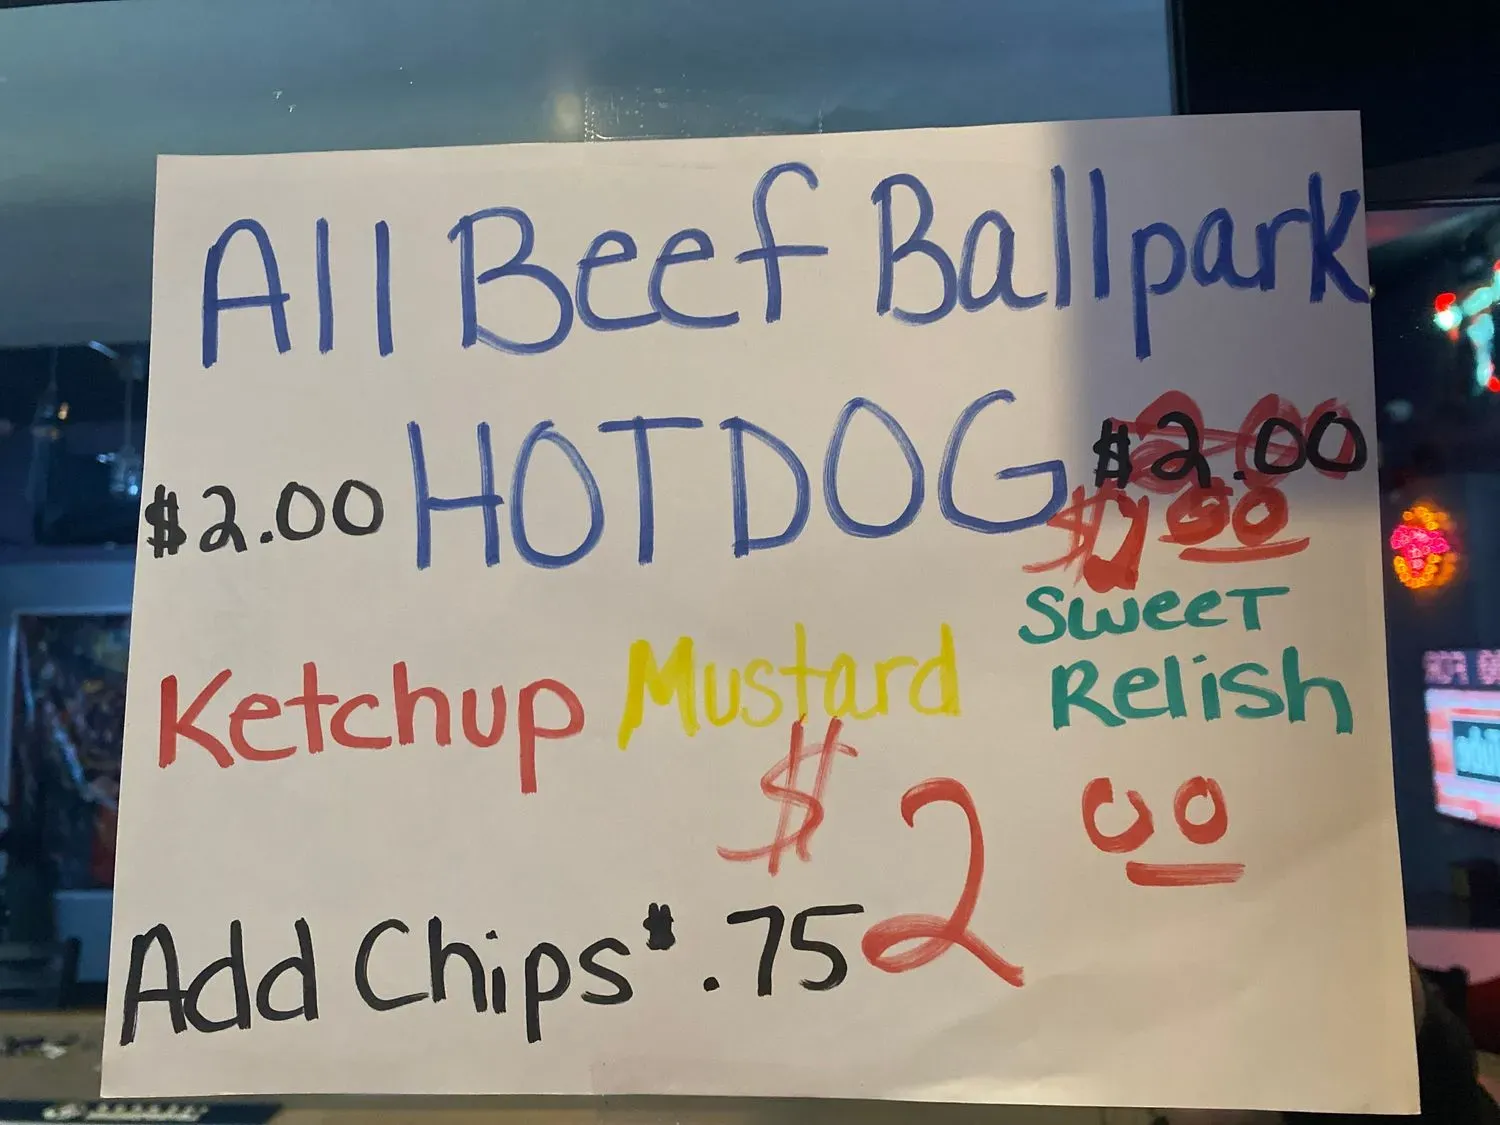 All Beef Ballpark
$2.00 HOTDOG $2.00
Ketchup Mustard Sweet Relish
$2 00
Add Chips $.75